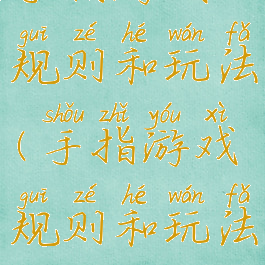 guī zé hé wán fǎ
规则和玩法
shǒu zhǐ yóu xì
(手指游戏
guī zé hé wán fǎ
规则和玩法